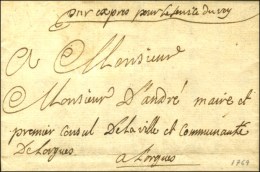 par exprès pour le service du roy
A Monsieur
Monsieur D'andré maire et
premier Consul De la ville et Communauté
De Lorgues
a Lorgues
1769